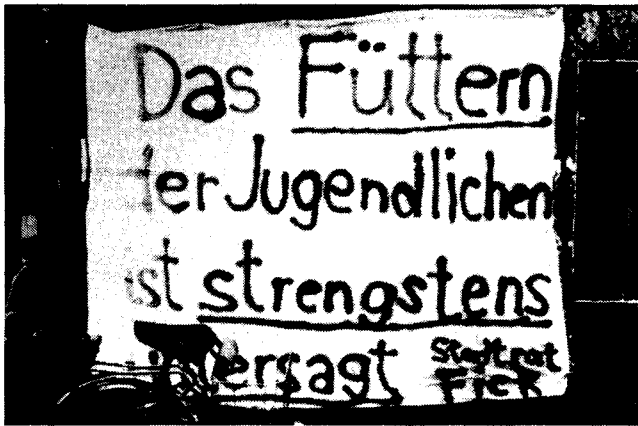 Das Füttern
der Jugendlichen
ist strengstens
untersagt Stadtrat
Frek